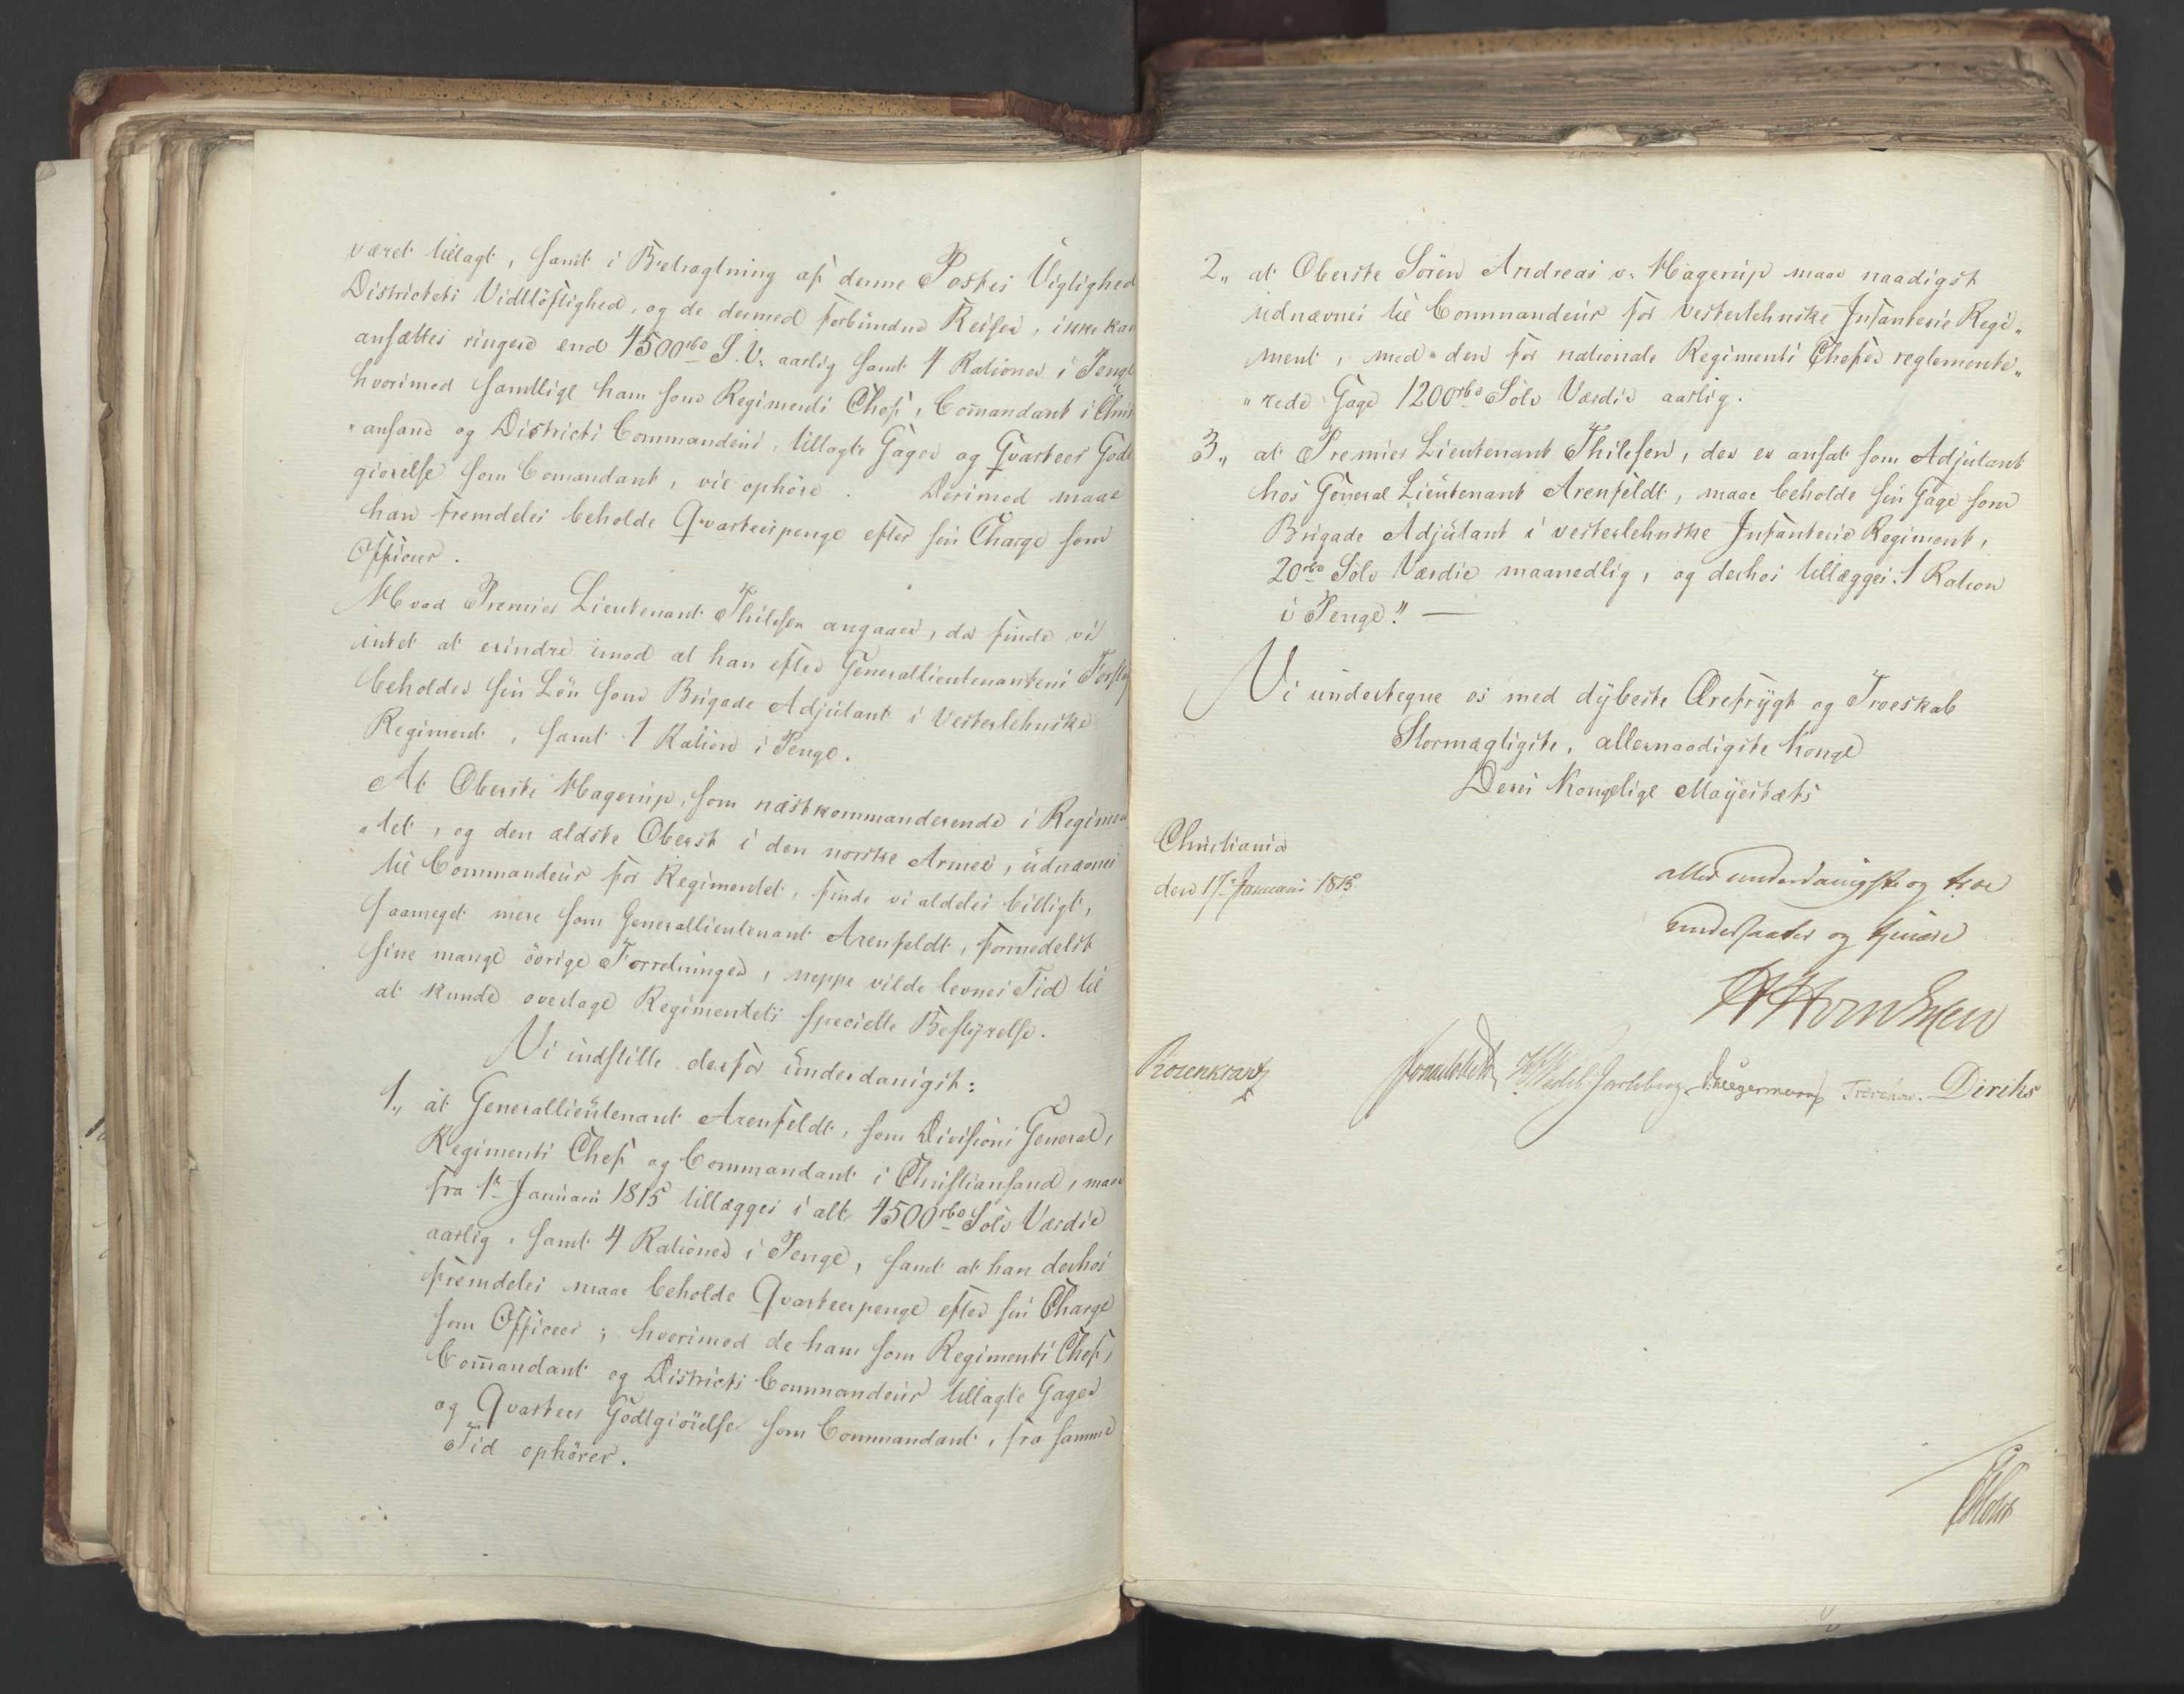 været tillagt, samt i Betragtning af denne Postes Vigtighed
Districtets Vidtlöftighed, og de dermed forbundne Reiser, ikke kan
ansættes ringere end 4500 rbd S. V. aarlig samt 4 Rationer i Penge
hvorimod samtlige ham som Regiments Chef, Com̄andant i Chri
"ansand og Districts Commandeur, tillagte Gager og Qvarteer Godt
giörelse som Com̄andant, vil ophöre. Derimod maae
han fremdeles beholde Qvarteerpenge efter sin Charge som
Officeer.
Hvad Premier Lieutenant Thilesen angaaer, da finde vi
intet at erindre imod at han efter Generallieutenantens Forslag
beholder sin Lön som Brigade Adjutant i Vesterlehnske
Regiment, samt 1 Ration i Penge.
At Oberste Hagerup, som næstkommanderende i Regimen
"tet, og den ældste Oberst i den norske Armee, udnævnes
til Commandeur for Regimentet, finde vi aldeles billigt,
saameget mere som Generallieutenant Arenfeldt, formedelst
sine mange övrige Forretninger, neppe vilde levnes Tid til
at kunde overtage Regimentets specielle Bestyrelse.
Vi indstille derfor underdanigst:
1,, at Generallieutenant Arenfeldt, som Divisions General,
Regiments Chef og Commandant i Christiansand, maae
fra 1te Januari 1815 tillægges i alt 4500 rbd Sölv Værdie
aarlig, samt 4 Rationer i Penge, samt at han derhos
fremdeles maae beholde Qvarteerpenge efter sin Charge
som Officeer; hvorimod de ham som Regiments Chef,
Com̄andant og Districts Commandeur tillagte Gager
og Qvarteer Godtgiörelse som Commandant, fra samme
Tid ophörer.
2,, at Oberste Sören Andreas v. Hagerup maae naadigst
udnævnes til Commandeur for vesterlehnske Infanterie Regi"
ment, med den for nationale Regiments Chefer reglemente"
"rede Gage 1200 rbd Sölv Værdie aarlig.
3,, at Premier Lieutenant Thilesen, der er ansat som Adjutant
hos General Lieutenant Arenfeldt, maae beholde sin Gage som
Brigade Adjutant i vesterlehnske Infanterie Regiment,
20 rbd Sölv Værdie maanedlig, og derhos tillægges 1 Ration
i Penge!! —
Vi undertegne os med dybeste Ærefrygt og Troeskab
Stormægtigste, allernaadigste Konge
Deres Kongelige Mayestæts
Christiania
den 17de Januari 1815
allerunderdanigste og troe
undersaatter og tjenere
Rosenkrantz
Sommerhielm HWedel Jarlsberg Diriks
Holst